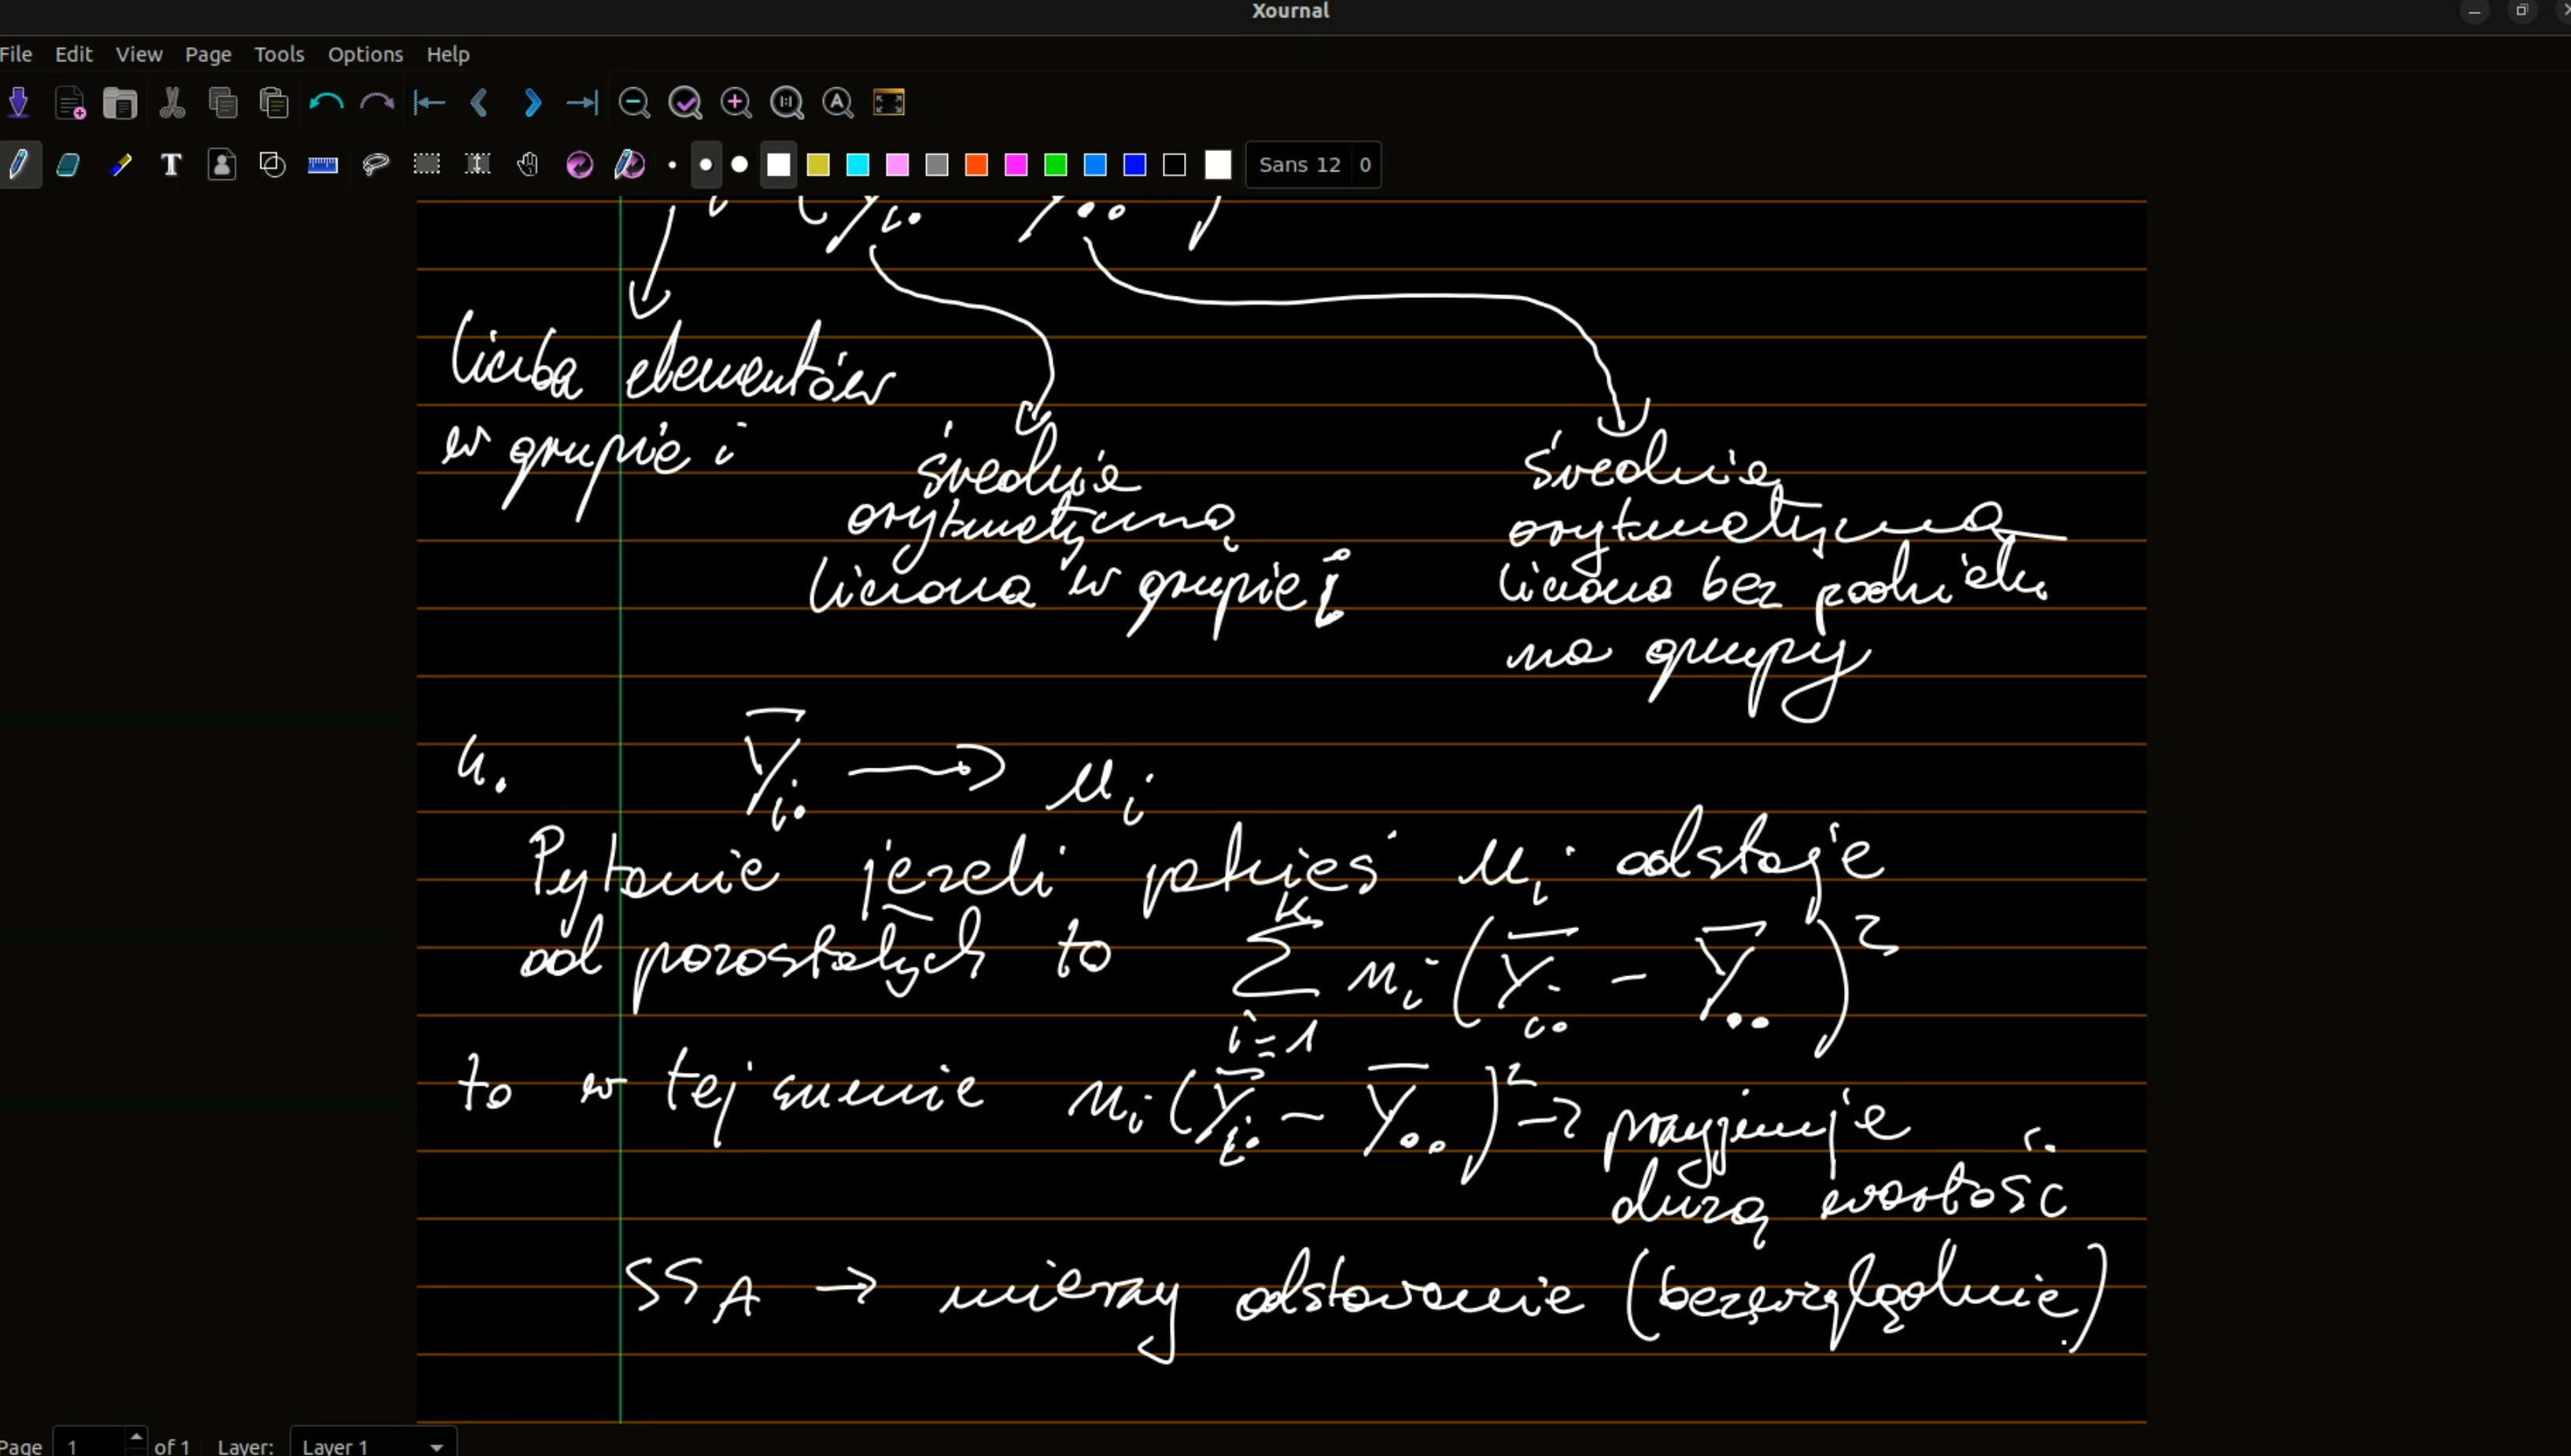 Xournal
File Edit View Page Tools Options Help
Sans 12 0
( Y̅i. Y̅.. )
liczba elementów
w grupie i
średnia
arytmetyczna
liczona w grupie i
średnia
arytmetyczna
liczona bez podziału
na grupy
4. Y̅i. → μi
Pytanie jeżeli jakieś μi odstaje
od pozostałych to ∑_{i=1}^{k} ni (Y̅i. - Y̅..)²
to w tej sumie ni (Y̅i. - Y̅..)² → przyjmuje
dużą wartość
SSA → mierzy odstawanie (bezwzględnie)
Page 1 of 1 Layer: Layer 1